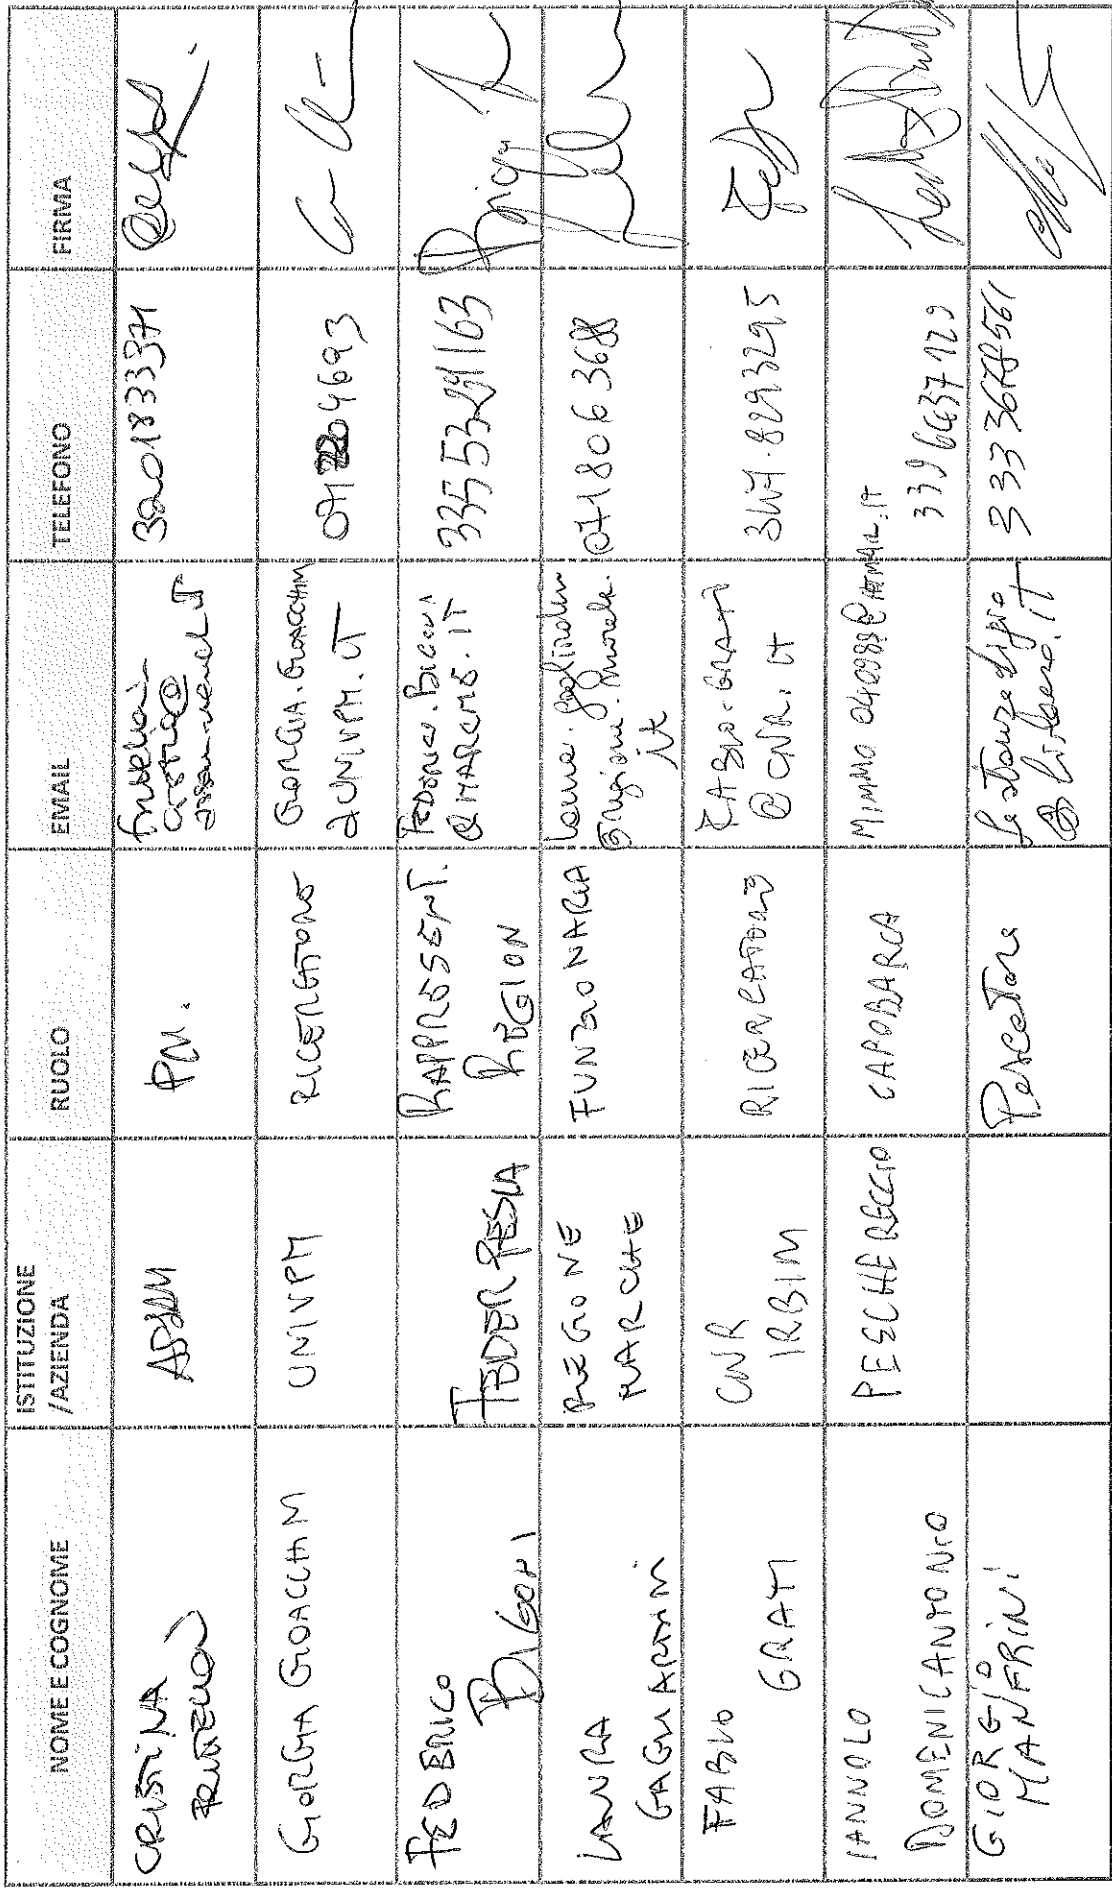 NOME E COGNOME
ISTITUZIONE
/AZIENDA
RUOLO
EMAIL
TELEFONO
FIRMA
CRISTINA
ASSAM
P.M.
3201833371
GIORGIA GIOACCHINI
UNIVPM
RICERCATORE
GIORGIA.GIOACCHINI
UNIVPM.IT
FEDERICO
BIGONI
FEDERPESCA
RAPPRESENT.
REGION
FEDERICO.BIGONI
@MARCHE.IT
335 5329163
LAURA
GAGLIARDINI
REGIONE
MARCHE
FUNZIONARIA
laura.gagliardini
@regione.marche.
it
071 806 3688
FABIO
GRATI
CNR
IRBIM
RICERCATORE
FABIO.GRATI
@CNR.IT
347.8293295
IANNOLO
DOMENICANTONIO
PESCHERECCIO
CAPOBARCA
MIMMO 040988@HOTMAIL.IT
339 6637129
GIORGIO
MANFRINI
Pescatore
@libero.it
333 3678561